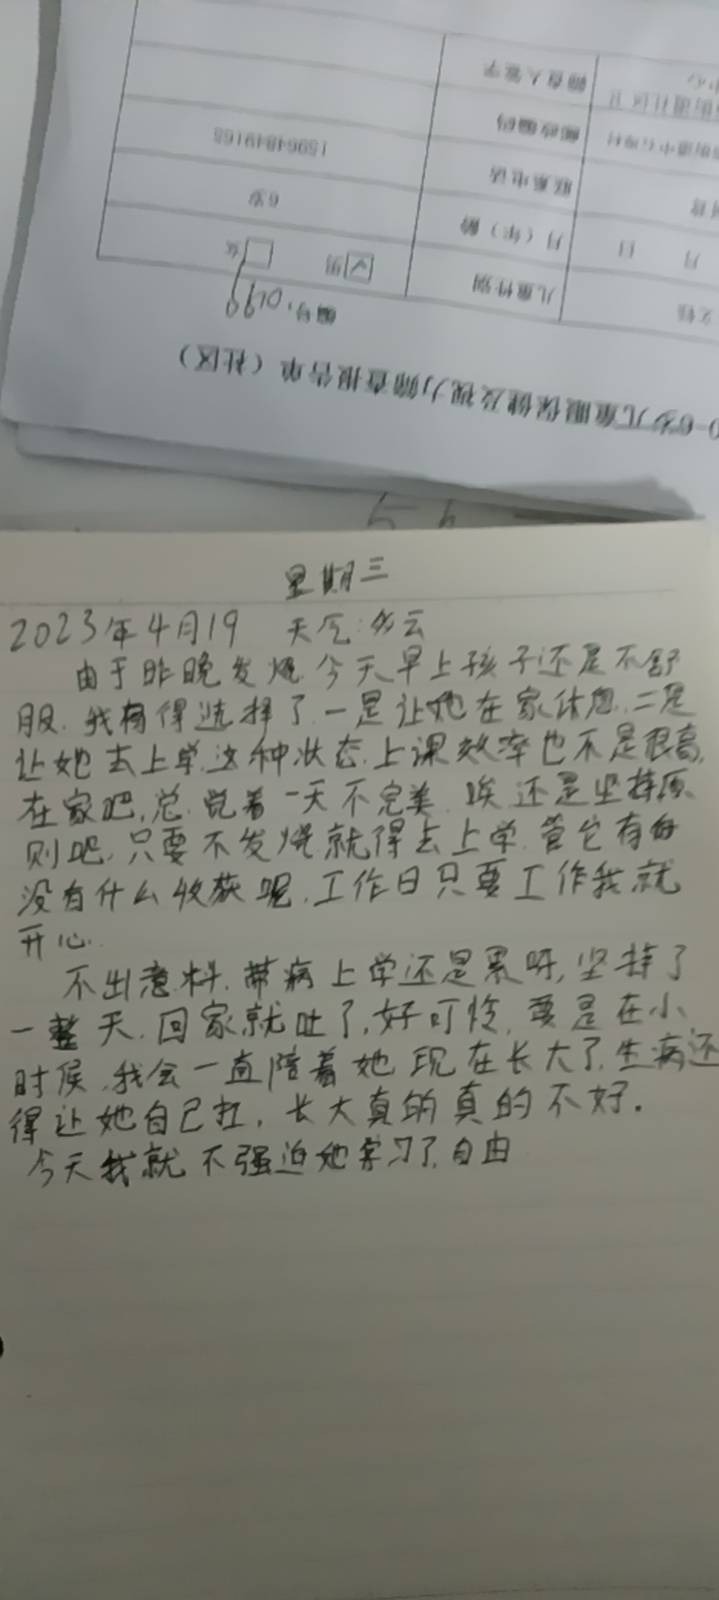 0-6岁儿童眼保健及视力筛查报告单（社区）
编号:0190
儿童性别 ☑男 □女
月（年）龄 6岁
联系电话 15964849165
邮政编码
筛查人签字
月 日
星期三
2023年4月19 天气:多云
由于昨晚发烧今天早上孩子还是不舒
服.我有得选择了.一是让她在家休息.二是
让她去上学.这种状态.上课效率也不是很高,
在家吧,总觉着一天不完美.唉还是坚持原
则吧,只要不发烧就得去上学.管它有
没有什么收获呢,工作日只要工作我就
开心.
不出意料.带病上学还是累呀,坚持了
一整天.回家就吐了,好可怜,要是在小
时候.我会一直陪着她现在长大了,生病还
得让她自己扛,长大真的真的不好.
今天我就不强迫她学习了,自由